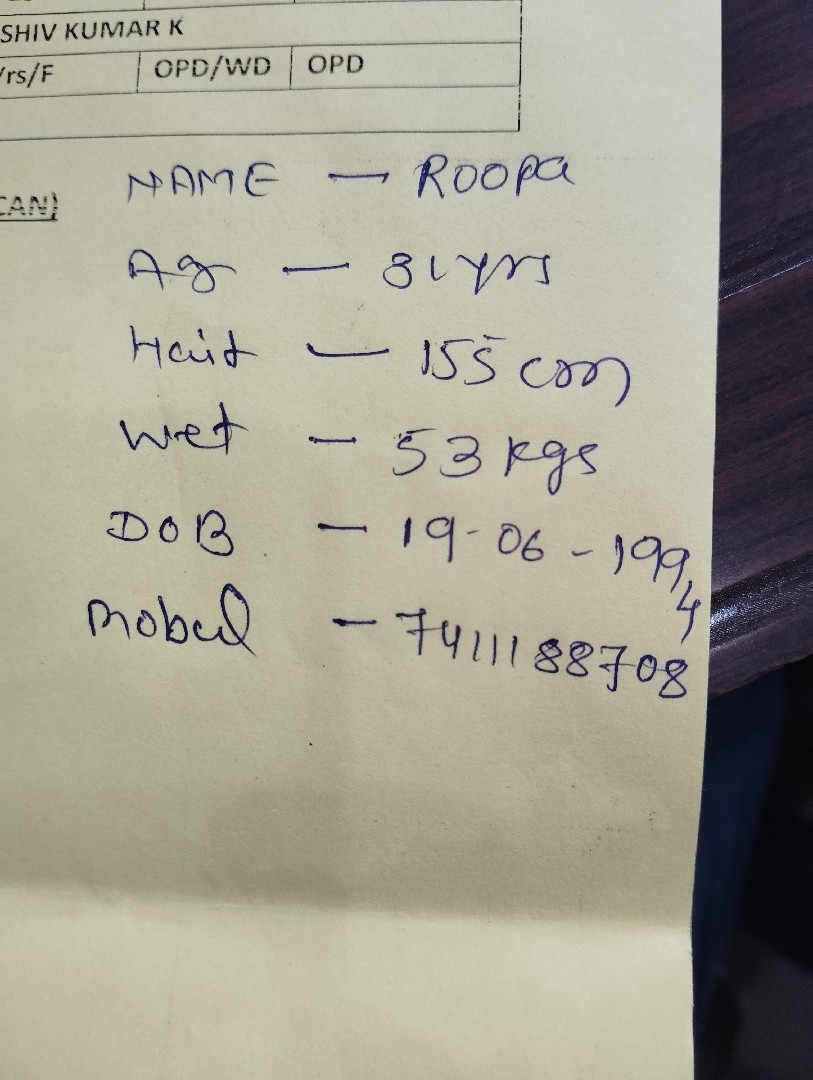 SHIV KUMAR K
rs/F OPD/WD OPD
CAN)
NAME — Roopa
Ag — 31 yrs
Hait — 155 cm
Wet — 53 kgs
DOB — 19-06-1994
Mobul — 7411188708